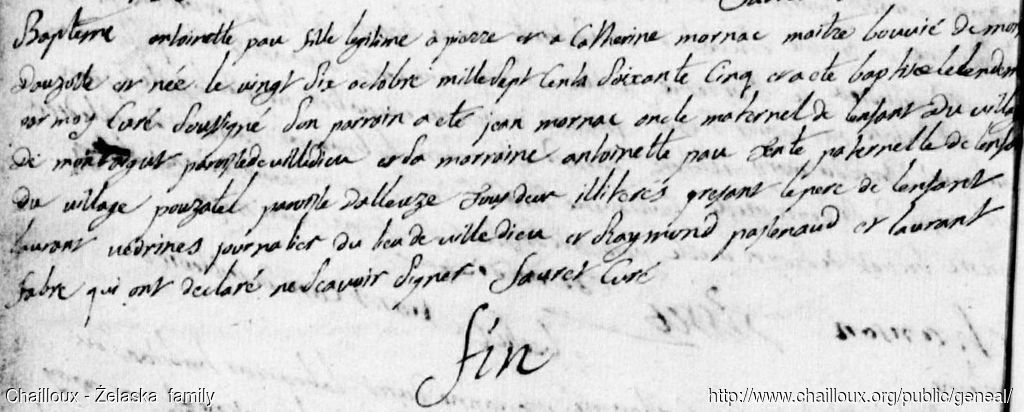 Bapteme antoinette pau fille legitime a pierre et a Catherine mornac maitre bouvié de mon
dauzolle et née le vingt Six octobre mille Sept Cents Soixante Cinq et a ete baptisée le lendem
par moy Curé Soussigné Son parrain a eté jean mornac oncle maternel de lenfant du villa
de montagut paroisse de villedieu et Sa marraine antoinette pau tente paternelle de lenfa
du village pouzatel paroisse dalleuze tous deux illiterés presant le pere de lenfant
laurant vedrines journalier du lieu de villedieu et Raymond pajenaud et laurant
fabre qui ont declaré ne Scavoir Signer. Sauret Curé
fin
Chailloux - Żelaska family
http://www.chailloux.org/public/geneal/